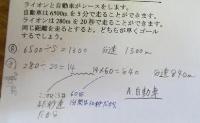 ライオンと自動車がレースをします。
自動車は6500mを5分で走ることができます。
ライオンは280mを20秒で走ることができます。
同じ距離を走るとすると、どちらが早くゴール
するでしょう。
6500÷5=1300 分速1300m
280÷20=14
14×60=840 分速840m
A.自動車
60倍
だから